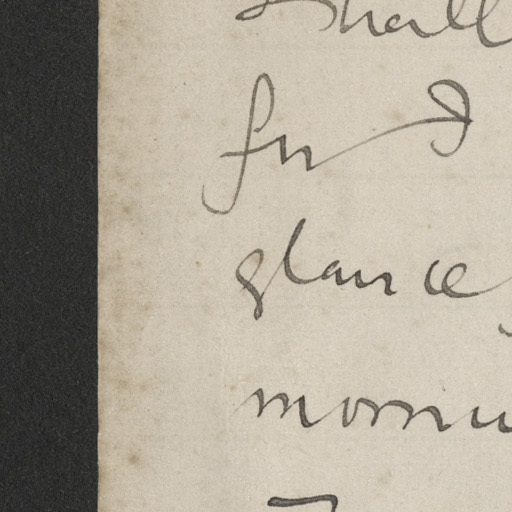 Shall
for I
glance
mornin